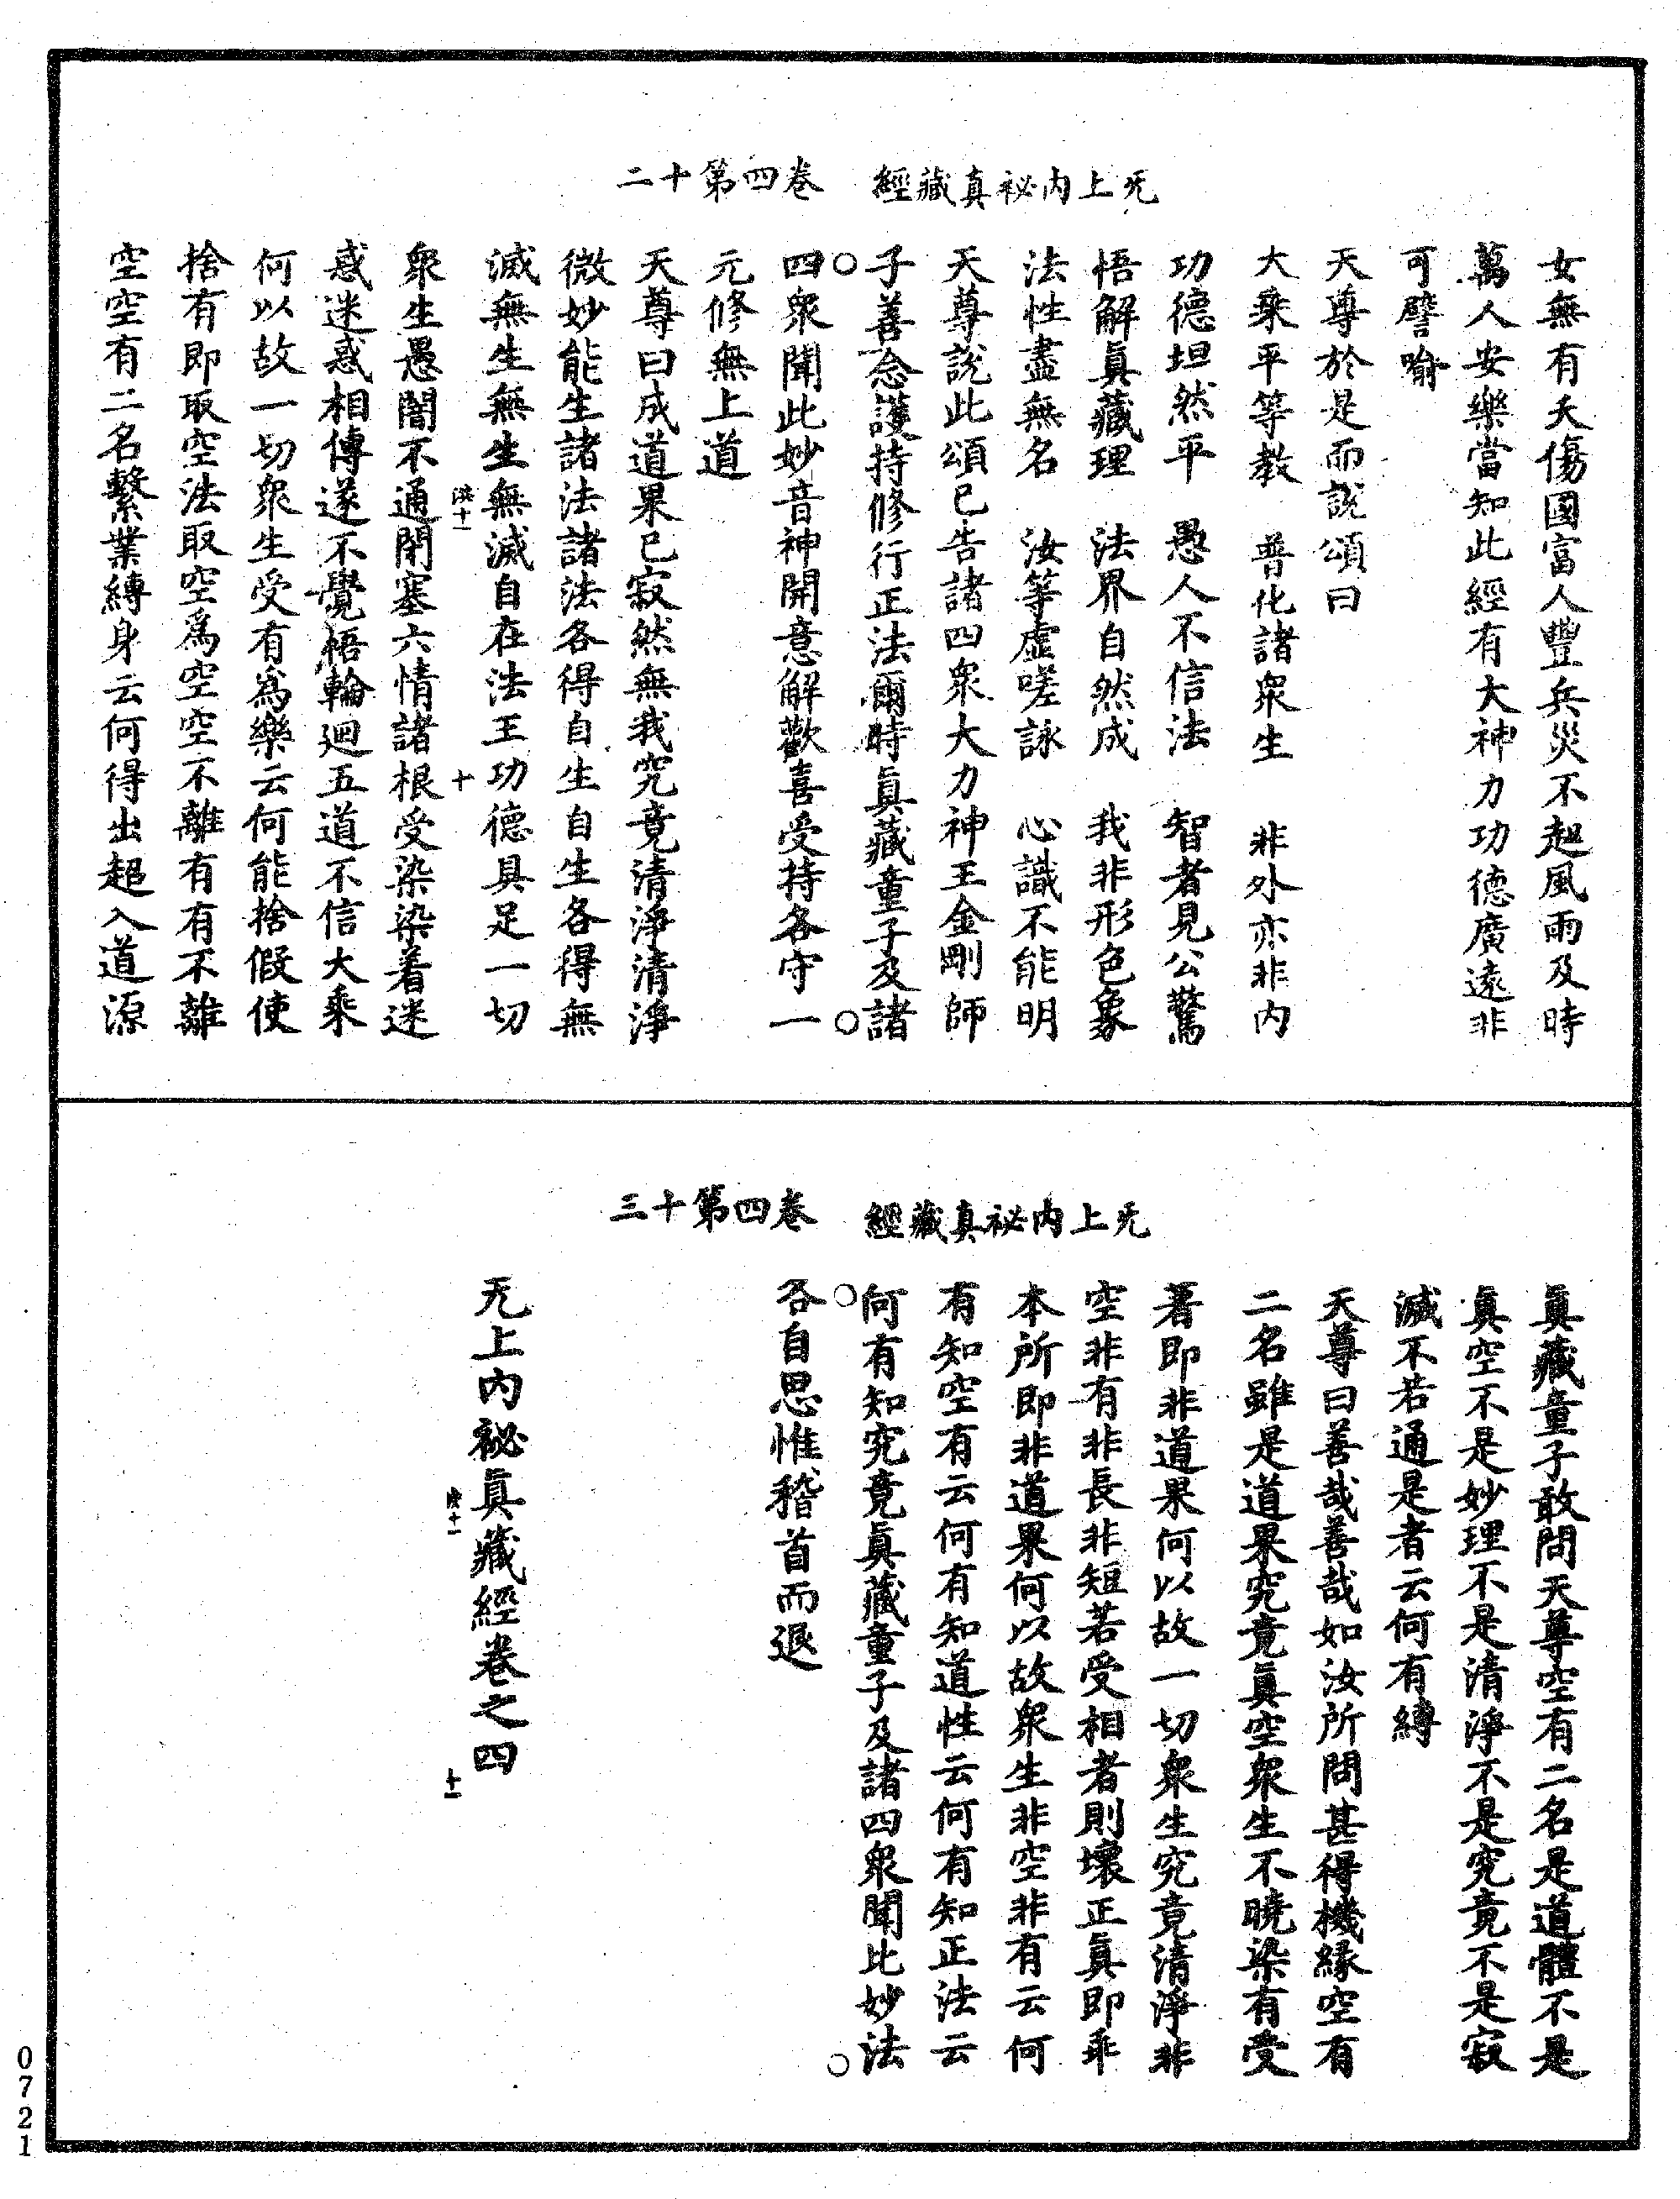 无上內祕真藏經　卷四第十二
女無有夭傷國富人豐兵災不起風雨及時
萬人安樂當知此經有大神力功德廣遠非
可譬喻
天尊於是而說頌曰
大乘平等教　普化諸衆生　非外亦非内
功德坦然平　愚人不信法　智者見公驚
悟解眞藏理　法界自然成　我非形色象
法性盡無名　汝等虛嗟詠　心識不能明
天尊說此頌已告諸四衆大力神王金剛師
子善念護持修行正法爾時眞藏童子及諸
四衆聞此妙音神開意解歡喜受持各守一
元修無上道
天尊曰成道果已寂然無我究竟清淨清淨
微妙能生諸法諸法各得自生自生各得無
滅無生無生無滅自在法王功德具足一切
十一
十
衆生愚闇不通閉塞六情諸根受染染着迷
惑迷惑相傳遂不覺悟輪迴五道不信大乘
何以故一切衆生受有爲樂云何能捨假使
捨有即取空法取空爲空空不離有有不離
空空有二名繫業縛身云何得出超入道源
无上内祕真藏經　卷四第十三
眞藏童子敢問天尊空有二名是道體不是
眞空不是妙理不是清淨不是究竟不是寂
滅不若通是者云何有縛
天尊曰善哉善哉如汝所問甚得機緣空有
二名雖是道果究竟眞空衆生不曉染有受
著即非道果何以故一切衆生究竟清淨非
空非有非長非短若受相者則壞正眞即乖
本所即非道果何以故衆生非空非有云何
有知空有云何有知道性云何有知正法云
何有知究竟眞藏童子及諸四衆聞比妙法
各自思惟稽首而退
无上内祕眞藏經卷之四
十一
十一
0721